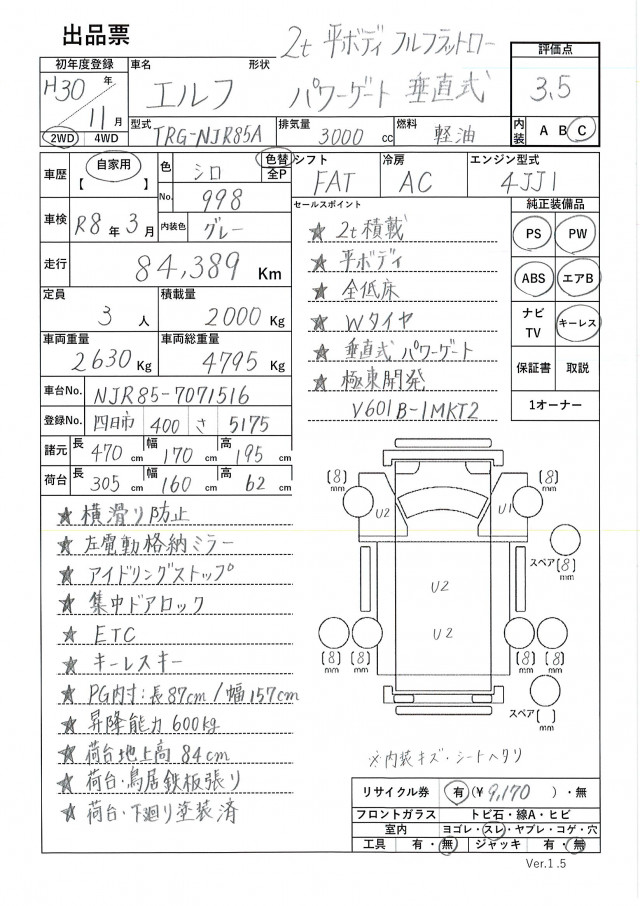 出品票
2t 平ボディ フルフラットロー
パワーゲート 垂直式
初年度登録
H30 年
11 月
2WD 4WD
車名 形状
エルフ
型式
TRG-NJR85A
排気量
3000 cc
燃料
軽油
評価点
3.5
内装 A B C
車歴
自家用
【 】
色
シロ
色替
全P
No.
998
シフト
FAT
冷房
AC
エンジン型式
4JJ1
車検
R8 年 3 月
内装色
グレー
走行
84,389 Km
定員
3 人
積載量
2000 Kg
車両重量
2630 Kg
車両総重量
4795 Kg
車台No.
NJR85-7071516
登録No.
四日市 400 さ 5175
諸元 長 470 cm 幅 170 cm 高 195 cm
荷台 長 305 cm 幅 160 cm 高 62 cm
セールスポイント
★ 2t積載
★ 平ボディ
★ 全低床
★ Wタイヤ
★ 垂直式 パワーゲート
★ 極東開発
V601B-1MKT2
純正装備品
PS PW
ABS エアB
ナビ
TV
キーレス
保証書 取説
1オーナー
★ 横滑り防止
★ 左電動格納ミラー
★ アイドリングストップ
★ 集中ドアロック
★ ETC
★ キーレスキー
★ PG内寸:長87cm/幅157cm
★ 昇降能力 600kg
★ 荷台地上高 84cm
★ 荷台・鳥居鉄板張り
★ 荷台・下廻り塗装済
(8)
mm
(8)
mm
U2
U1
スペア (8)
mm
U2
U2
(8)
mm
(8)
mm
(8)
mm
(8)
mm
スペア ( )
mm
※内装キズ・シートヘタリ
リサイクル券 有 (¥ 9,170 )・無
フロントガラス トビ石・線A・ヒビ
室内 ヨゴレ・スレ・ヤブレ・コゲ・穴
工具 有・無 ジャッキ 有・無
Ver.1.5